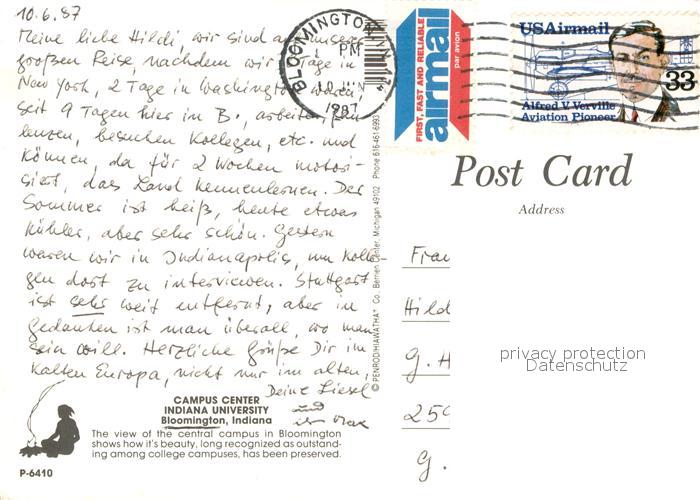 10.6.87
Meine liebe Hildi, wir sind auf unserer
großen Reise, nachdem wir Tage in
New York, 2 Tage in Washington waren,
seit 9 Tagen hier in B., arbeiten,
lenzen, besuchen Kollegen, etc. und
können, da für 2 Wochen motori-
siert, das Land kennenlernen. Der
Sommer ist heiß, heute etwas
kühler, aber sehr schön. Gestern
waren wir in Indianapolis, um Kolle-
gen dort zu interviewen. Stuttgart
ist sehr weit entfernt, aber in
Gedanken ist man überall, wo man
sein will. Herzliche Grüße Dir im
kalten Europa, nicht nur im alten.
Deine Liesel
und
CAMPUS CENTER
INDIANA UNIVERSITY
Bloomington, Indiana
The view of the central campus in Bloomington
shows how it's beauty, long recognized as outstand-
ing among college campuses, has been preserved.
P-6410
© PENROD/HIAWATHA Co., Berrien Center, Michigan 49102 Phone 616-461-6993
BLOOMINGTON
PM
10 JUN
1987
FIRST, FAST AND RELIABLE
airmail
par avion
USAirmail
33
Alfred V. Verville
Aviation Pioneer
Post Card
Address
Frau
Hild
G. H
259
G.
privacy protection
Datenschutz